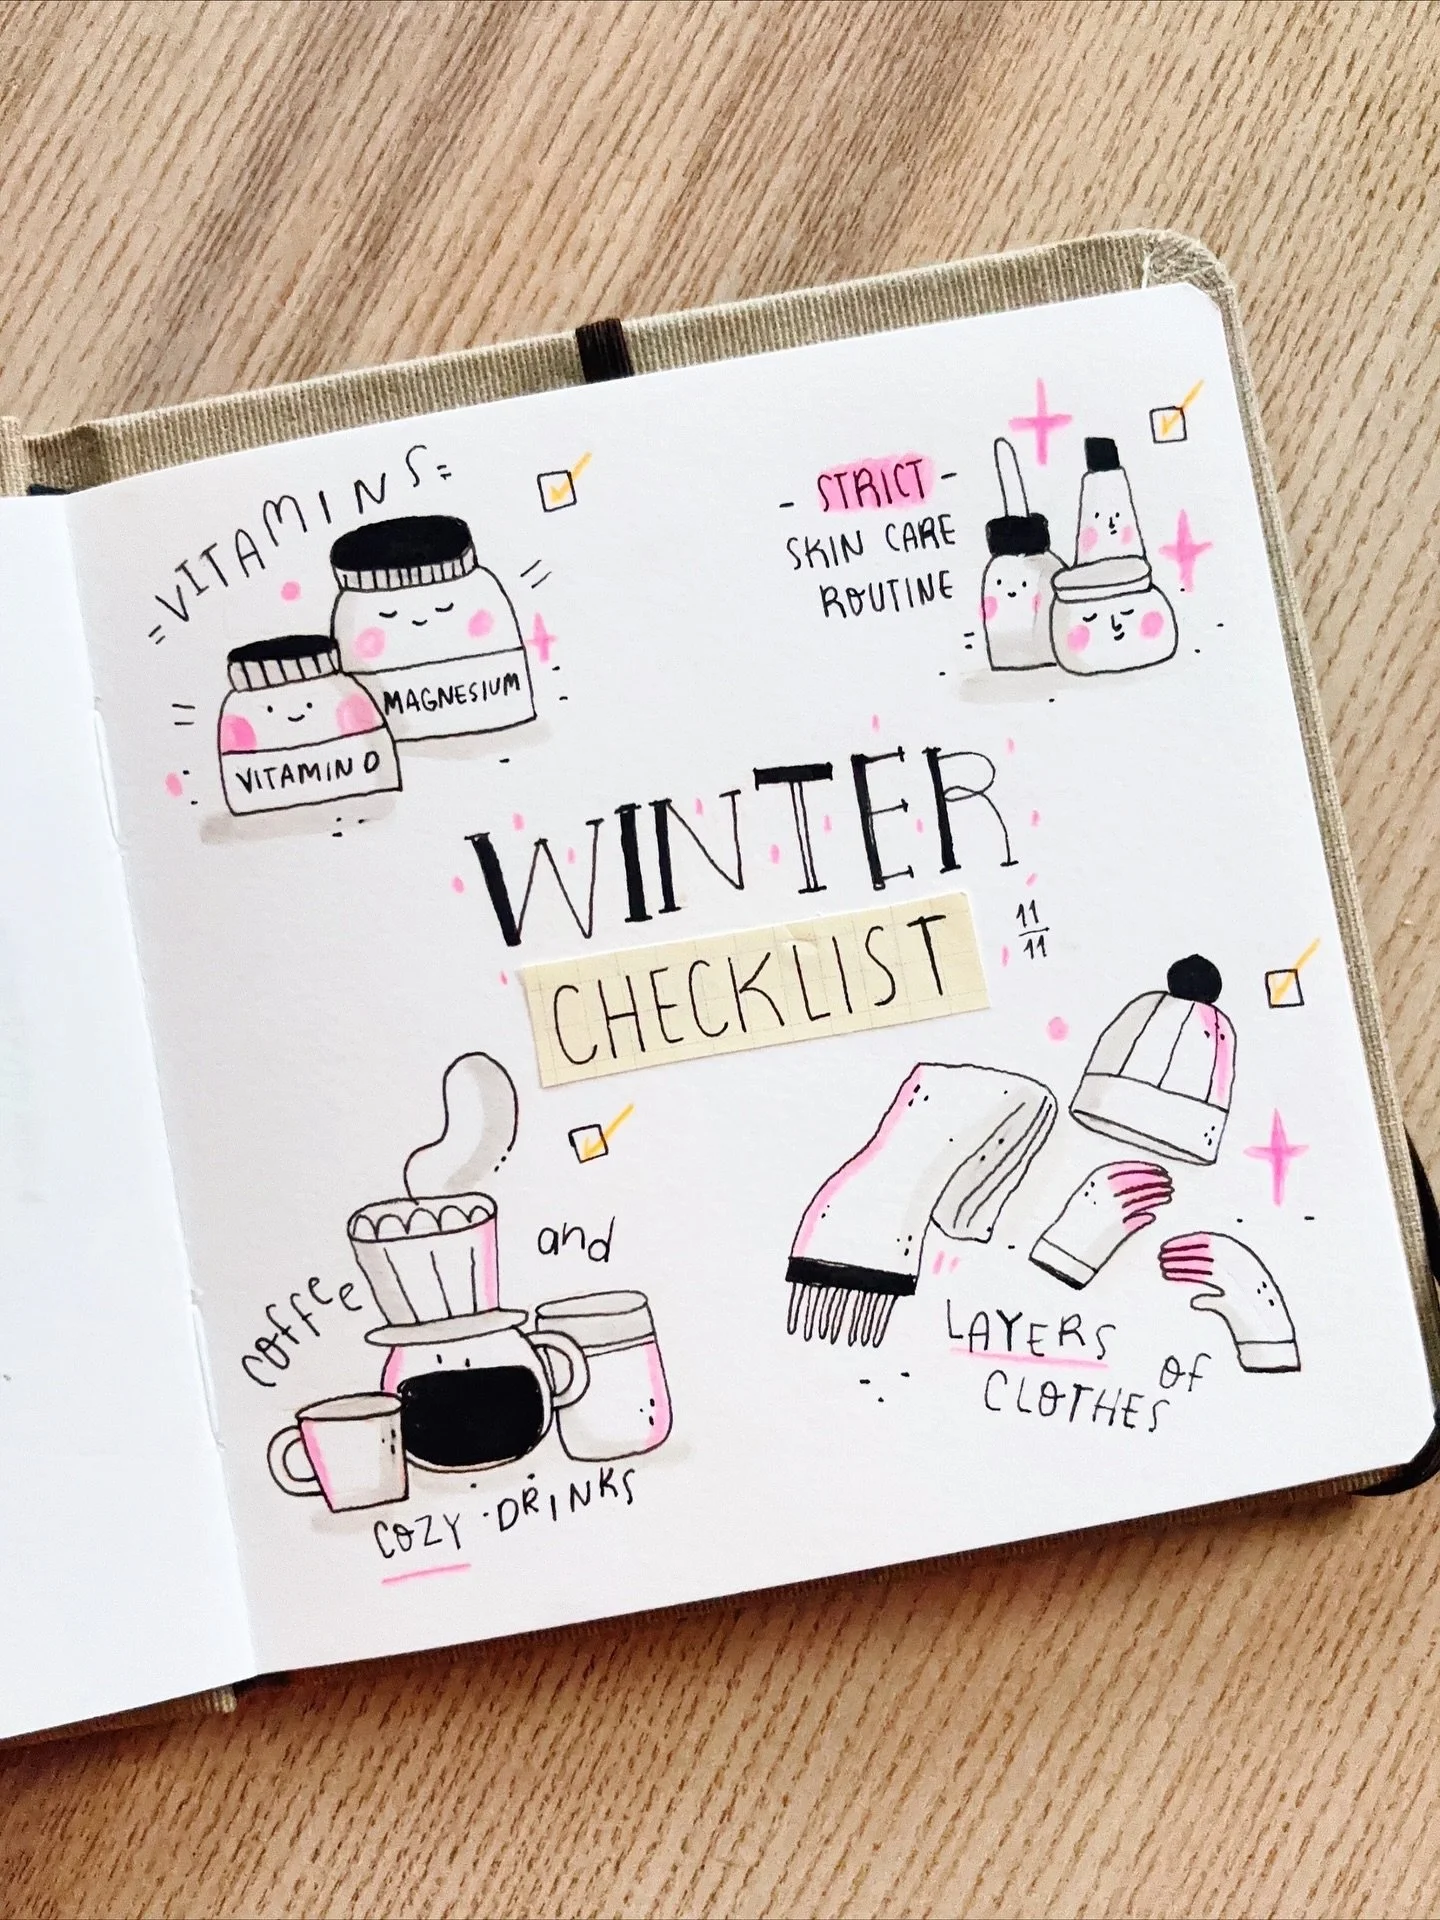 VITAMINS
MAGNESIUM
VITAMIN D
STRICT
SKIN CARE
ROUTINE
WINTER
CHECKLIST
11
11
coffee
and
COZY DRINKS
LAYERS
of
CLOTHES